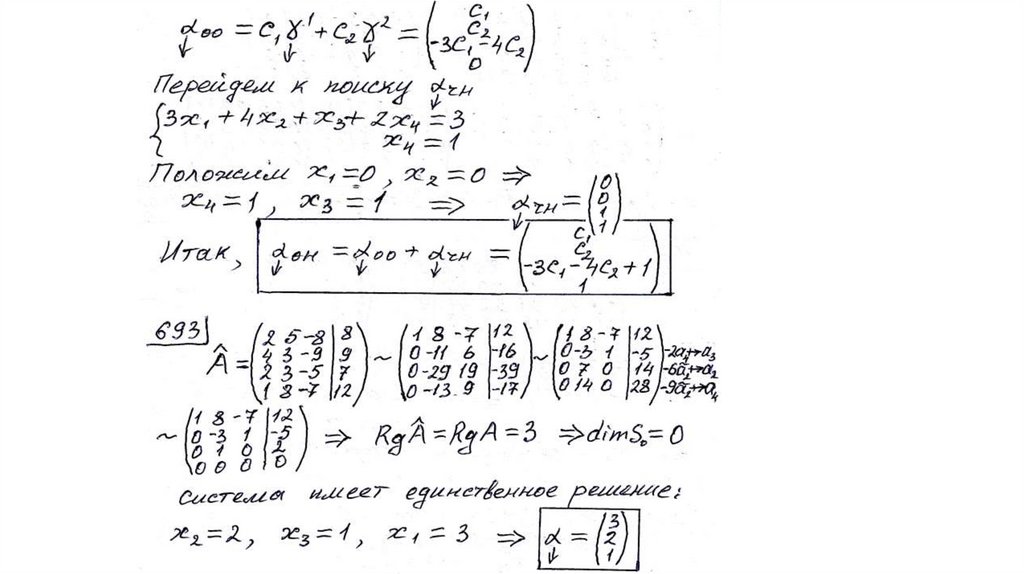 α₀₀ = C₁γ¹ + C₂γ² = (C₁; C₂; -3C₁-4C₂; 0)
Перейдем к поиску α чн
{3x₁ + 4x₂ + x₃ + 2x₄ = 3
x₄ = 1
Положим x₁=0, x₂=0 ⇒
x₄=1, x₃ = 1 ⇒ α чн = (0; 0; 1; 1)
Итак, α он = α оо + α чн = (C₁; C₂; -3C₁-4C₂+1; 1)
693 Â = (2 5 -8 | 8; 4 3 -9 | 9; 2 3 -5 | 7; 1 8 -7 | 12) ~ (1 8 -7 | 12; 0 -11 6 | -16; 0 -29 19 | -39; 0 -13 9 | -17) ~ (1 8 -7 | 12; 0 -3 1 | -5; 0 7 0 | 14; 0 14 0 | 28)
~ (1 8 -7 | 12; 0 -3 1 | -5; 0 1 0 | 2; 0 0 0 | 0) ⇒ RgÂ = RgA = 3 ⇒ dimS₀ = 0
система имеет единственное решение:
x₂ = 2, x₃ = 1, x₁ = 3 ⇒ α = (3; 2; 1)